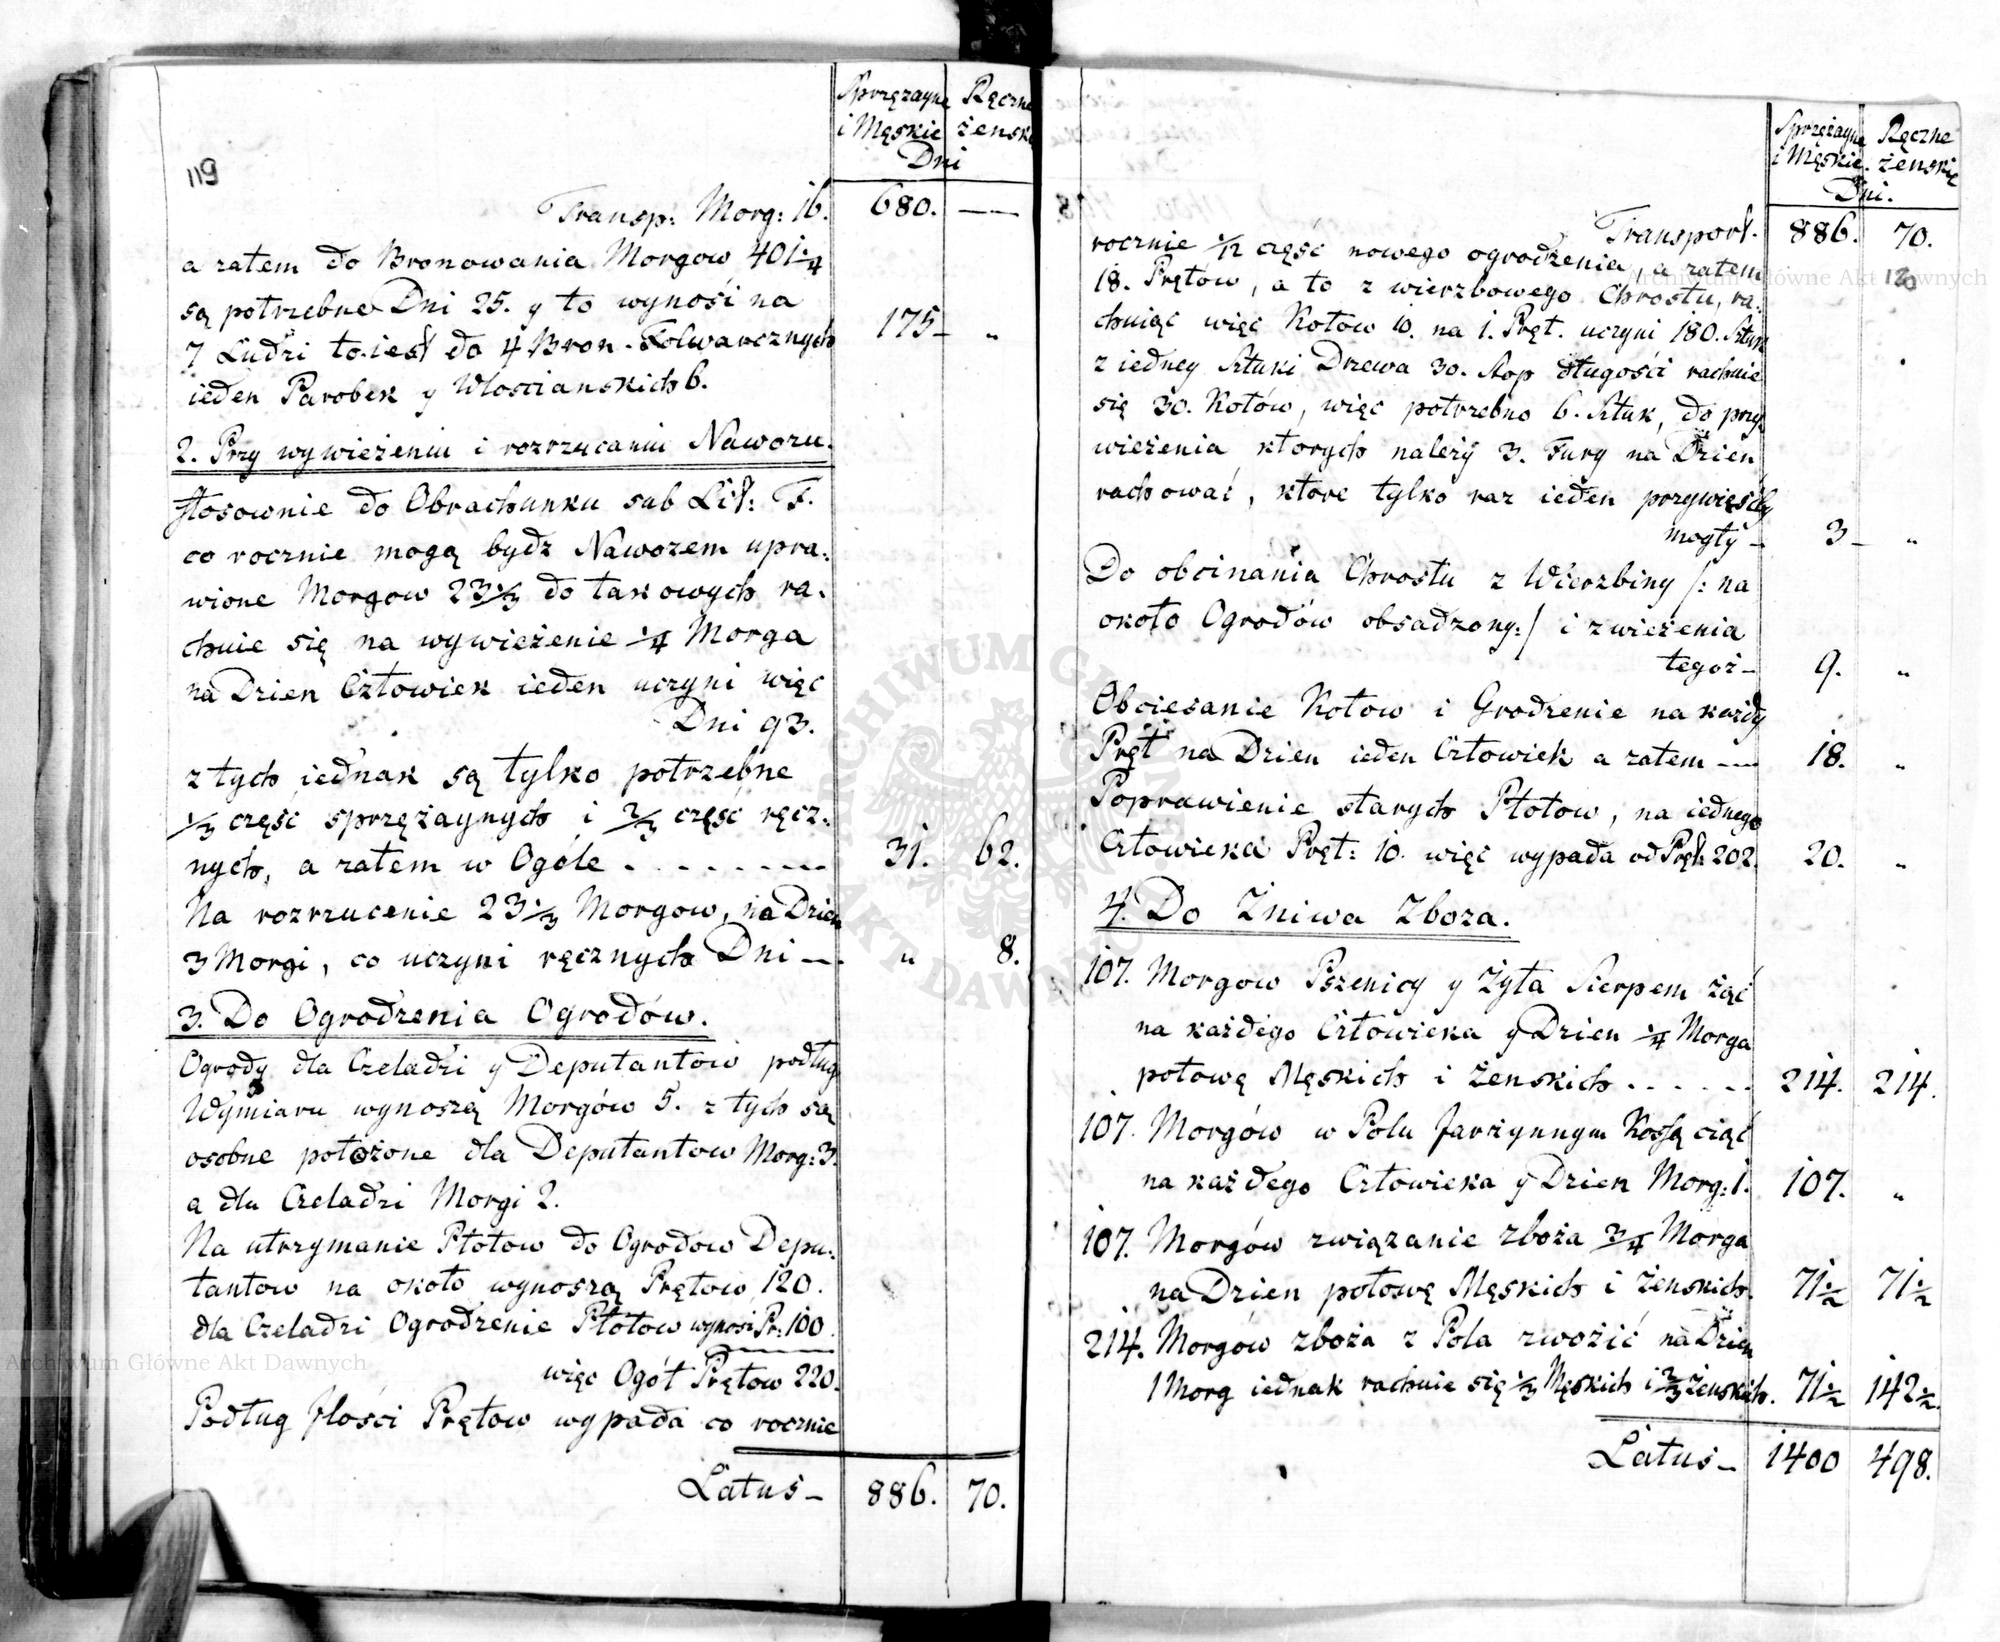 119
Sprzężayne Ręczne
i Męskie żenskie
Dni
Transp: Morg: 16. 680. —
a zatem do Bronowania Morgow 401 1/4
są potrzebne Dni 25. y to wynośi na
7 Ludzi to iest do 4 Bron Folwarcznych 175 — "
ieden Parobek y Włoscianskich 6.
2. Przy wywieżeniu i rozrzucaniu Nawozu.
stosownie do Obrachunku sub Lit: F.
co rocznie mogą bydz Nawozem upra:
wione Morgow 23 1/3 do takowych ra:
chuie się na wywieżenie 1/4 Morga
na Dzien Człowiek ieden uczyni więc
Dni 93.
z tych iednak są tylko potrzebne
1/3 częsc sprzężaynych i 2/3 częsc ręcz:
nych, a zatem w Ogóle . . . . . . . 31. 62.
Na rozrzucenie 23 1/3 Morgow, na Dzien
3 Morgi, co uczyni ręcznych Dni — " 8.
3. Do Ogrodzenia Ogrodów.
Ogrody dla Czeladzi y Deputantow podług
Wymiaru wynoszą Morgów 5. z tych są
osobne położone dla Deputantow Morg: 3.
a dla Czeladzi Morgi 2.
Na utrzymanie Płotow do Ogrodow Depu:
tantow na około wynoszą Prętow 120.
dla Czeladzi Ogrodzenie Płotow wynosi Pr: 100.
więc Ogół Prętow 220.
Podług Jlości Prętow wypada co rocznie
Latus — 886. 70.
Sprzężayne Ręczne
i Męskie. żenskie
Dni.
Transport. 886. 70.
120
rocznie 1/12 część nowego ogrodzenia, a zatem
18. Prętow, a to z wierzbowego Chrostu, ra:
chuiąc więc Kołow 10. na 1. Pręt. uczyni 180. Sztuk
z iedney Sztuki Drzewa 30. stop długośći rachuie
się 30. Kołów, więc potrzebno 6. Sztuk, do przy
wieżenia ktorych należy 3. Fury na Dzien
rachować, ktore tylko raz ieden przywieśćby
mogły — 3 — "
Do obcinania Chrostu z Wierzbiny /: na
około Ogrodów obsadzony :/ i zwieżenia
tegoż — 9. "
Obciesanie Kołow i Grodzenie na każdy
Pręt na Dzien ieden Człowiek a zatem — 18. "
Poprawienie starych Płotow, na iednego
Człowieka Pręt: 10. więc wypada od Pręt: 202. 20. "
4. Do Zniwa Zboza.
107. Morgow Pszenicy y Żyta Sierpem żąć
na każdego Człowieka y Dzien 1/4 Morga
połowę Męskich i Zenskich . . . . . 214. 214.
107. Morgów w Polu Jarzynnym Kosą ciąć
na każdego Człowieka y Dzien Morg: 1. 107. "
107. Morgów związanie zboża 3/4 Morga
na Dzien połowę Męskich i żenskich 71 1/2 71 1/2
214. Morgów zboża z Pola zwożić na Dzien
1 Morg iednak rachuie się 1/3 Męskich i 2/3 żenskich. 71 1/2 142 1/2.
Latus — 1400 498.
ARCHIWUM GŁÓWNE AKT DAWNYCH
Archiwum Główne Akt Dawnych
Archiwum Główne Akt Dawnych